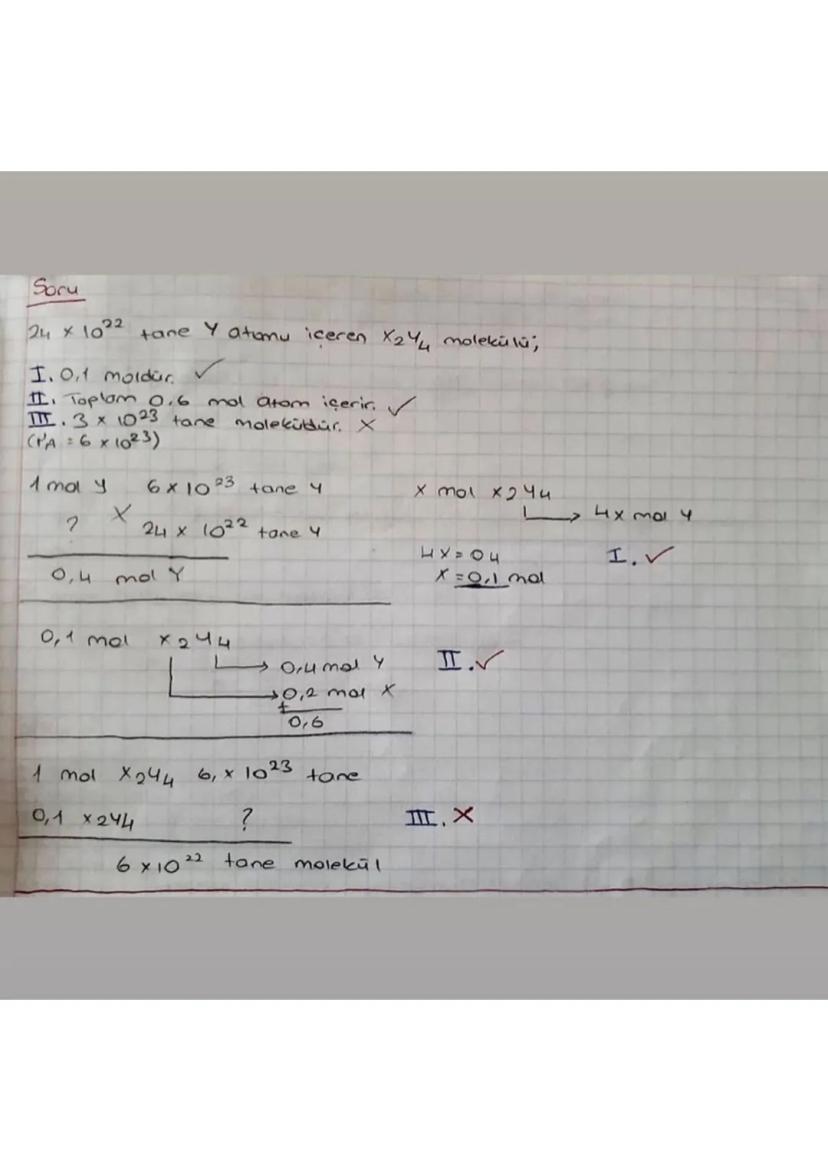 Soru
24 x 10²² tane Y atomu içeren X₂Y₄ molekülü;
I. 0,1 moldür. ✓
II. Toplam 0.6 mol atom içerir. ✓
III. 3 x 10²³ tane moleküldür. X
(NA = 6 x 10²³)
1 mol Y 6 x 10²³ tane Y
? X 24 x 10²² tane Y
0,4 mol Y
x mol X₂Y₄
→ 4x mol Y
4x = 04
x = 0,1 mol
I. ✓
0,1 mol X₂Y₄
→ 0,4 mol Y
→ 0,2 mol X
+
0,6
II. ✓
1 mol X₂Y₄ 6, x 10²³ tane
0,1 X₂Y₄ ?
6 x 10²² tane molekül
III. X